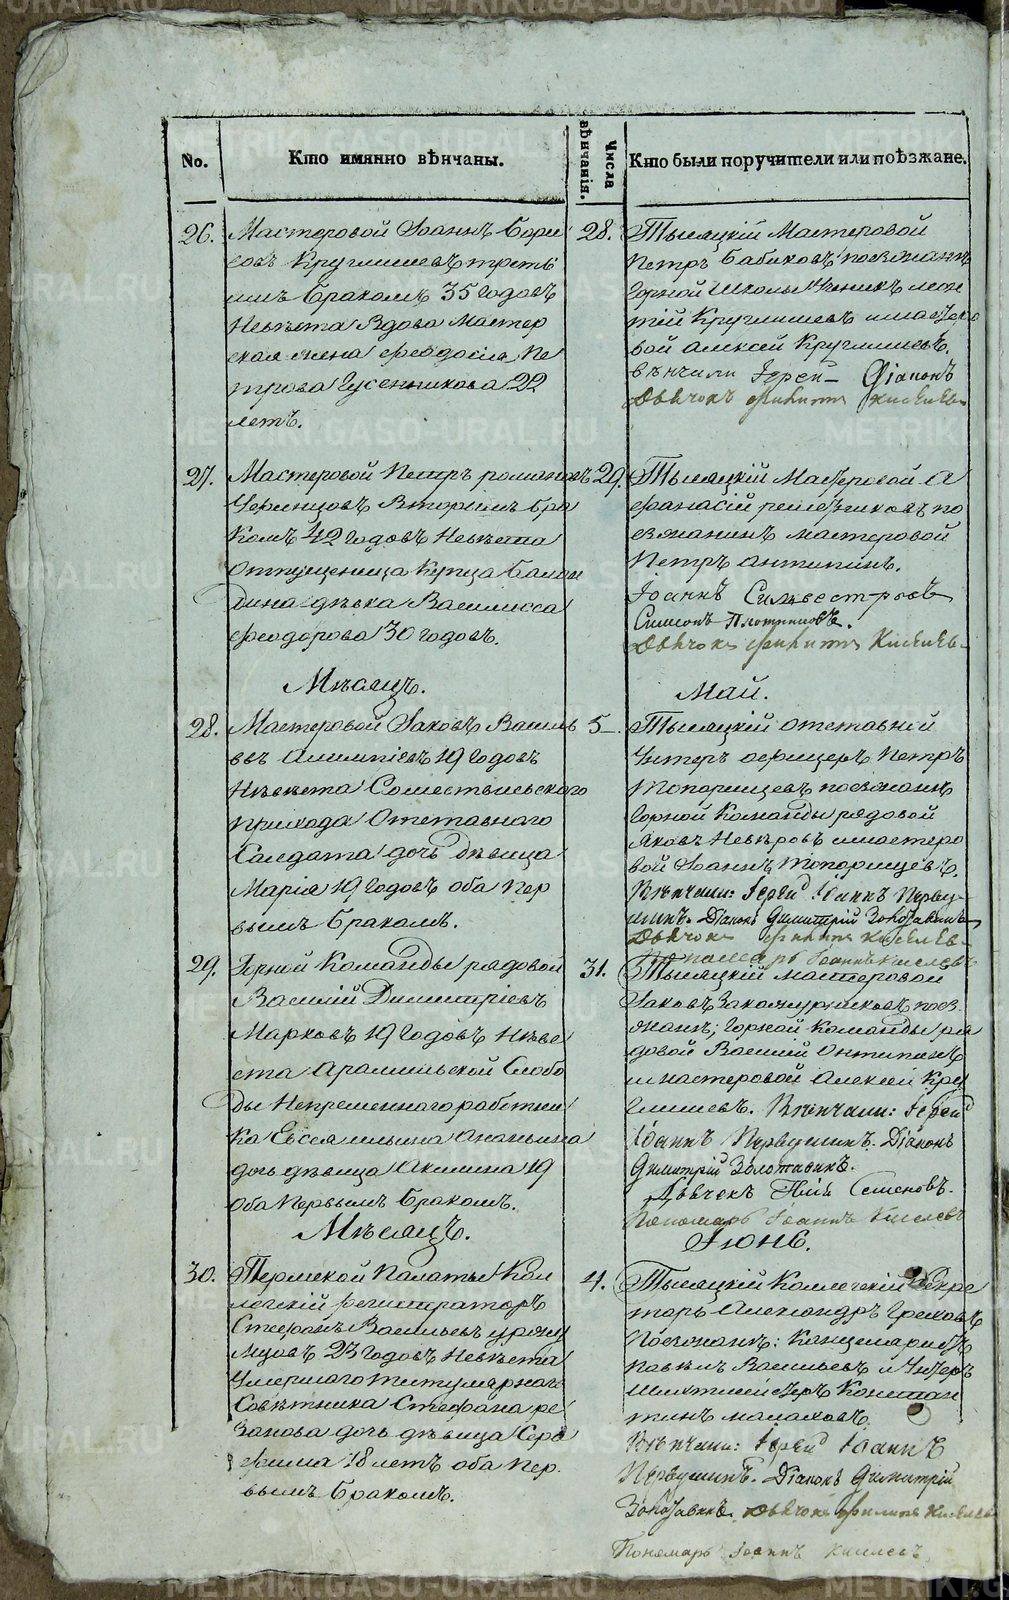 No.
Кто имянно вѣнчаны.
Числа вѣнчанія.
Кто были поручители или поѣзжане.
26.
Мастеровой Іоаннъ Бори
совъ Круглишевъ треть
имъ бракомъ 35 годовъ
Невѣста Вдова Мастер
ская жена Феодосіа Пе
трова Гусенникова 22
летъ.
28.
Тысяцкій Мастеровой
Петръ Бабиковъ поезжанинъ
Горной Школы Ученикъ леон
тій Круглишевъ и мастеро
вой алексей Круглишевъ.
вѣнчали Іерей – Діаконъ
Дьячокъ Филиппъ Киселевъ
27.
Мастеровой Петръ романовъ
вторымъ бра
комъ 42 годовъ Невѣста
отпущенница Купца Балан
дина дѣвка Василисса
Феодорова 30 годовъ.
29.
Тысяцкій Мастеровой А
фанасій решетниковъ по
езжанинъ мастеровой
Петръ антипинъ.
Іоаннъ Сильвестровъ
Симеонъ Плотниковъ.
Дьячокъ Филиппъ Киселевъ
Мѣсяцъ.
Май.
28.
Мастеровой Іаковъ Василь
евъ 19 годовъ
Невѣста
прихода Отставнаго
Салдата дочь дѣвица
Марія 19 годовъ оба пер
вымъ бракомъ.
5
Тысяцкій отставній
Унтеръ офицеръ Петръ
Топорищевъ поезжанъ
горной Команды рядовой
Яковъ Невѣровъ и мастеро
вой Іоаннъ Топорищевъ.
Вѣнчали: Іерей Іоаннъ Перву-
шинъ. Діаконъ Димитрій Золотавинъ
Дьячокъ Филиппъ Киселевъ
Пономарь Іоаннъ Киселевъ
29.
Горной Команды рядовой
Василій Димитріевъ
Марковъ 19 годовъ Невѣ
ста Арамильской Слобо
ды Непременнаго работни
ка Ананьина
дочь дѣвица Акилина 19
оба первымъ бракомъ.
31.
Тысяцкій мастеровой
Іаковъ поез
жанъ; горной Команды ря
довой Василій Антипинъ
и мастеровой Алексей Кру
глишевъ. Вѣнчали: Іерей
Іоаннъ Первушинъ. Діаконъ
Димитрій Золотавинъ.
Дьячекъ Семеновъ.
Пономарь Іоаннъ Киселевъ
Мѣсяцъ.
Іюнь.
30.
Пермской Палаты Кол
лежскій регистраторъ
Стефанъ Васильевъ
23 годовъ Невѣста
Умершаго титулярнаго
Совѣтника Стефана ре
занова дочь дѣвица Сера
фима 18 летъ оба пер
вымъ бракомъ.
4.
Тысяцкій Коллежскій Секре
тарь Александръ Греховъ
Поезжанъ: Канцеляристъ
Павелъ Васильевъ и Унтеръ
Шихтмейстеръ Констан
тинъ малаховъ.
Вѣнчали: Іерей Іоаннъ
Первушинъ. Діаконъ Димитрій
Золотавинъ. Дьячокъ Филиппъ Киселевъ
Пономарь Іоаннъ Киселевъ
METRIKI.GASO-URAL.RU